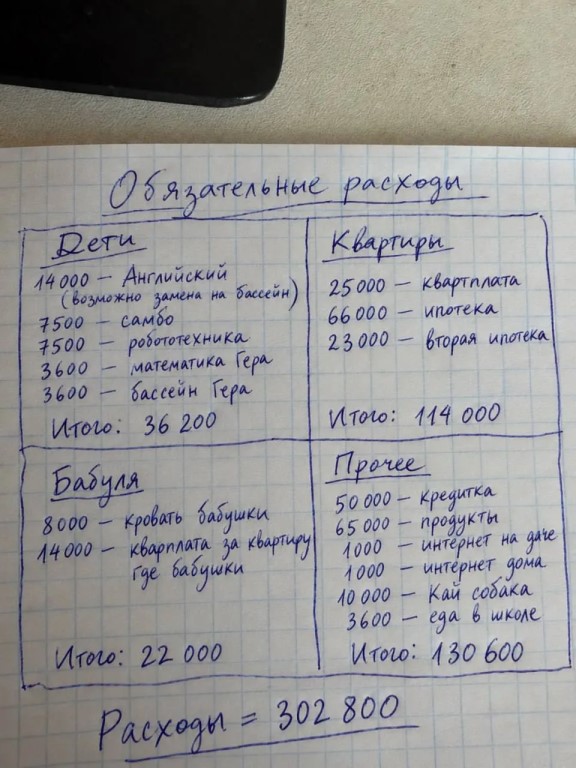 Обязательные расходы
Дети
14000 – Английский
(возможно замена на бассейн)
7500 – самбо
7500 – робототехника
3600 – математика Гера
3600 – бассейн Гера
Итого: 36 200
Квартиры
25000 – квартплата
66000 – ипотека
23000 – вторая ипотека
Итого: 114 000
Бабуля
8000 – кровать бабушки
14000 – кварплата за квартиру
где бабушки
Итого: 22 000
Прочее
50000 – кредитка
65000 – продукты
1000 – интернет на даче
1000 – интернет дома
10000 – Кай собака
3600 – еда в школе
Итого: 130 600
Расходы = 302 800